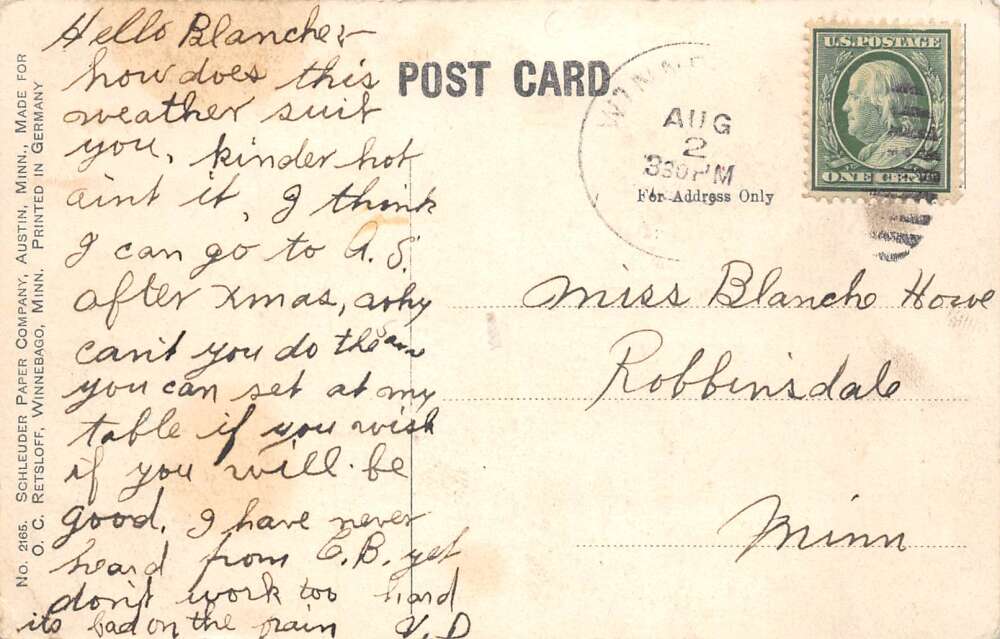 No. 2165. Schleuder Paper Company, Austin, Minn., Made for
O. C. Retsloff, Winnebago, Minn. Printed in Germany
Hello Blanche
how does this
weather suit
you, kinder hot
aint it, I think
I can go to A. S.
after xmas, why
can't you do the same
you can set at my
table if you wish
if you will be
good. I have never
heard from C.B. yet
don't work too hard
its bad on the
POST CARD
For Address Only
WINNE
AUG
2
330PM
U.S. POSTAGE
ONE CENT
Miss Blanche Howe
Robbinsdale
Minn